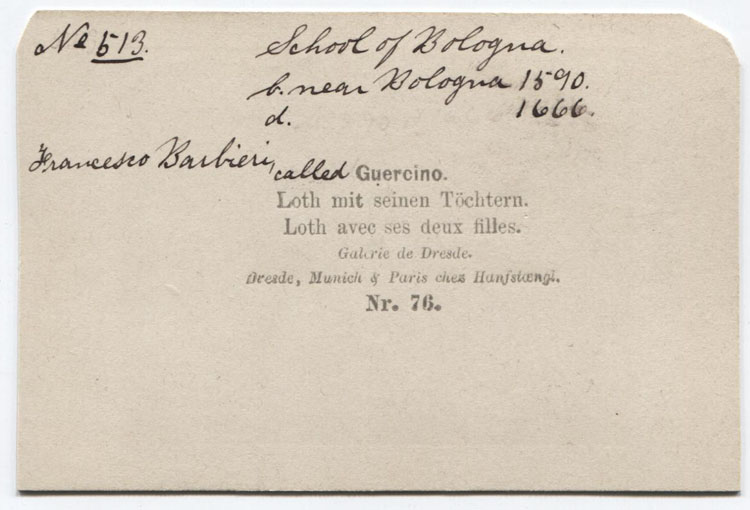 No 513.
School of Bologna.
b. near Bologna 1590.
d. 1666.
Francesco Barbieri, called Guercino.
Loth mit seinen Töchtern.
Loth avec ses deux filles.
Galerie de Dresde.
Dresde, Munich & Paris chez Hanfstængl.
Nr. 76.